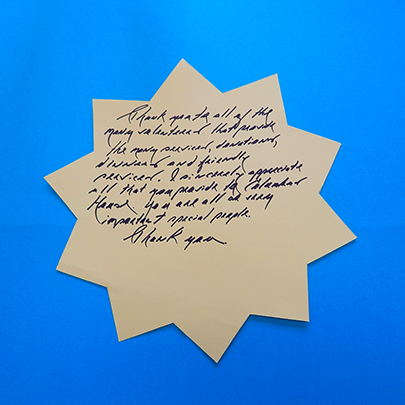 Thank you to all of the
many volunteers that provide
the many services, donations,
and friendly
services. I sincerely appreciate
all that you provide to
House. You are all so very
important special people.
Thank you.